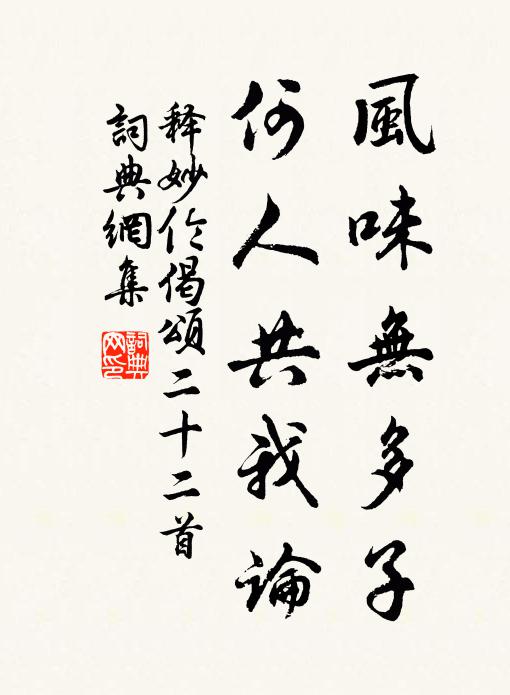 風味無多子
何人共我論
释妙伦偈頌二十二首
詞典網集
詞典網印